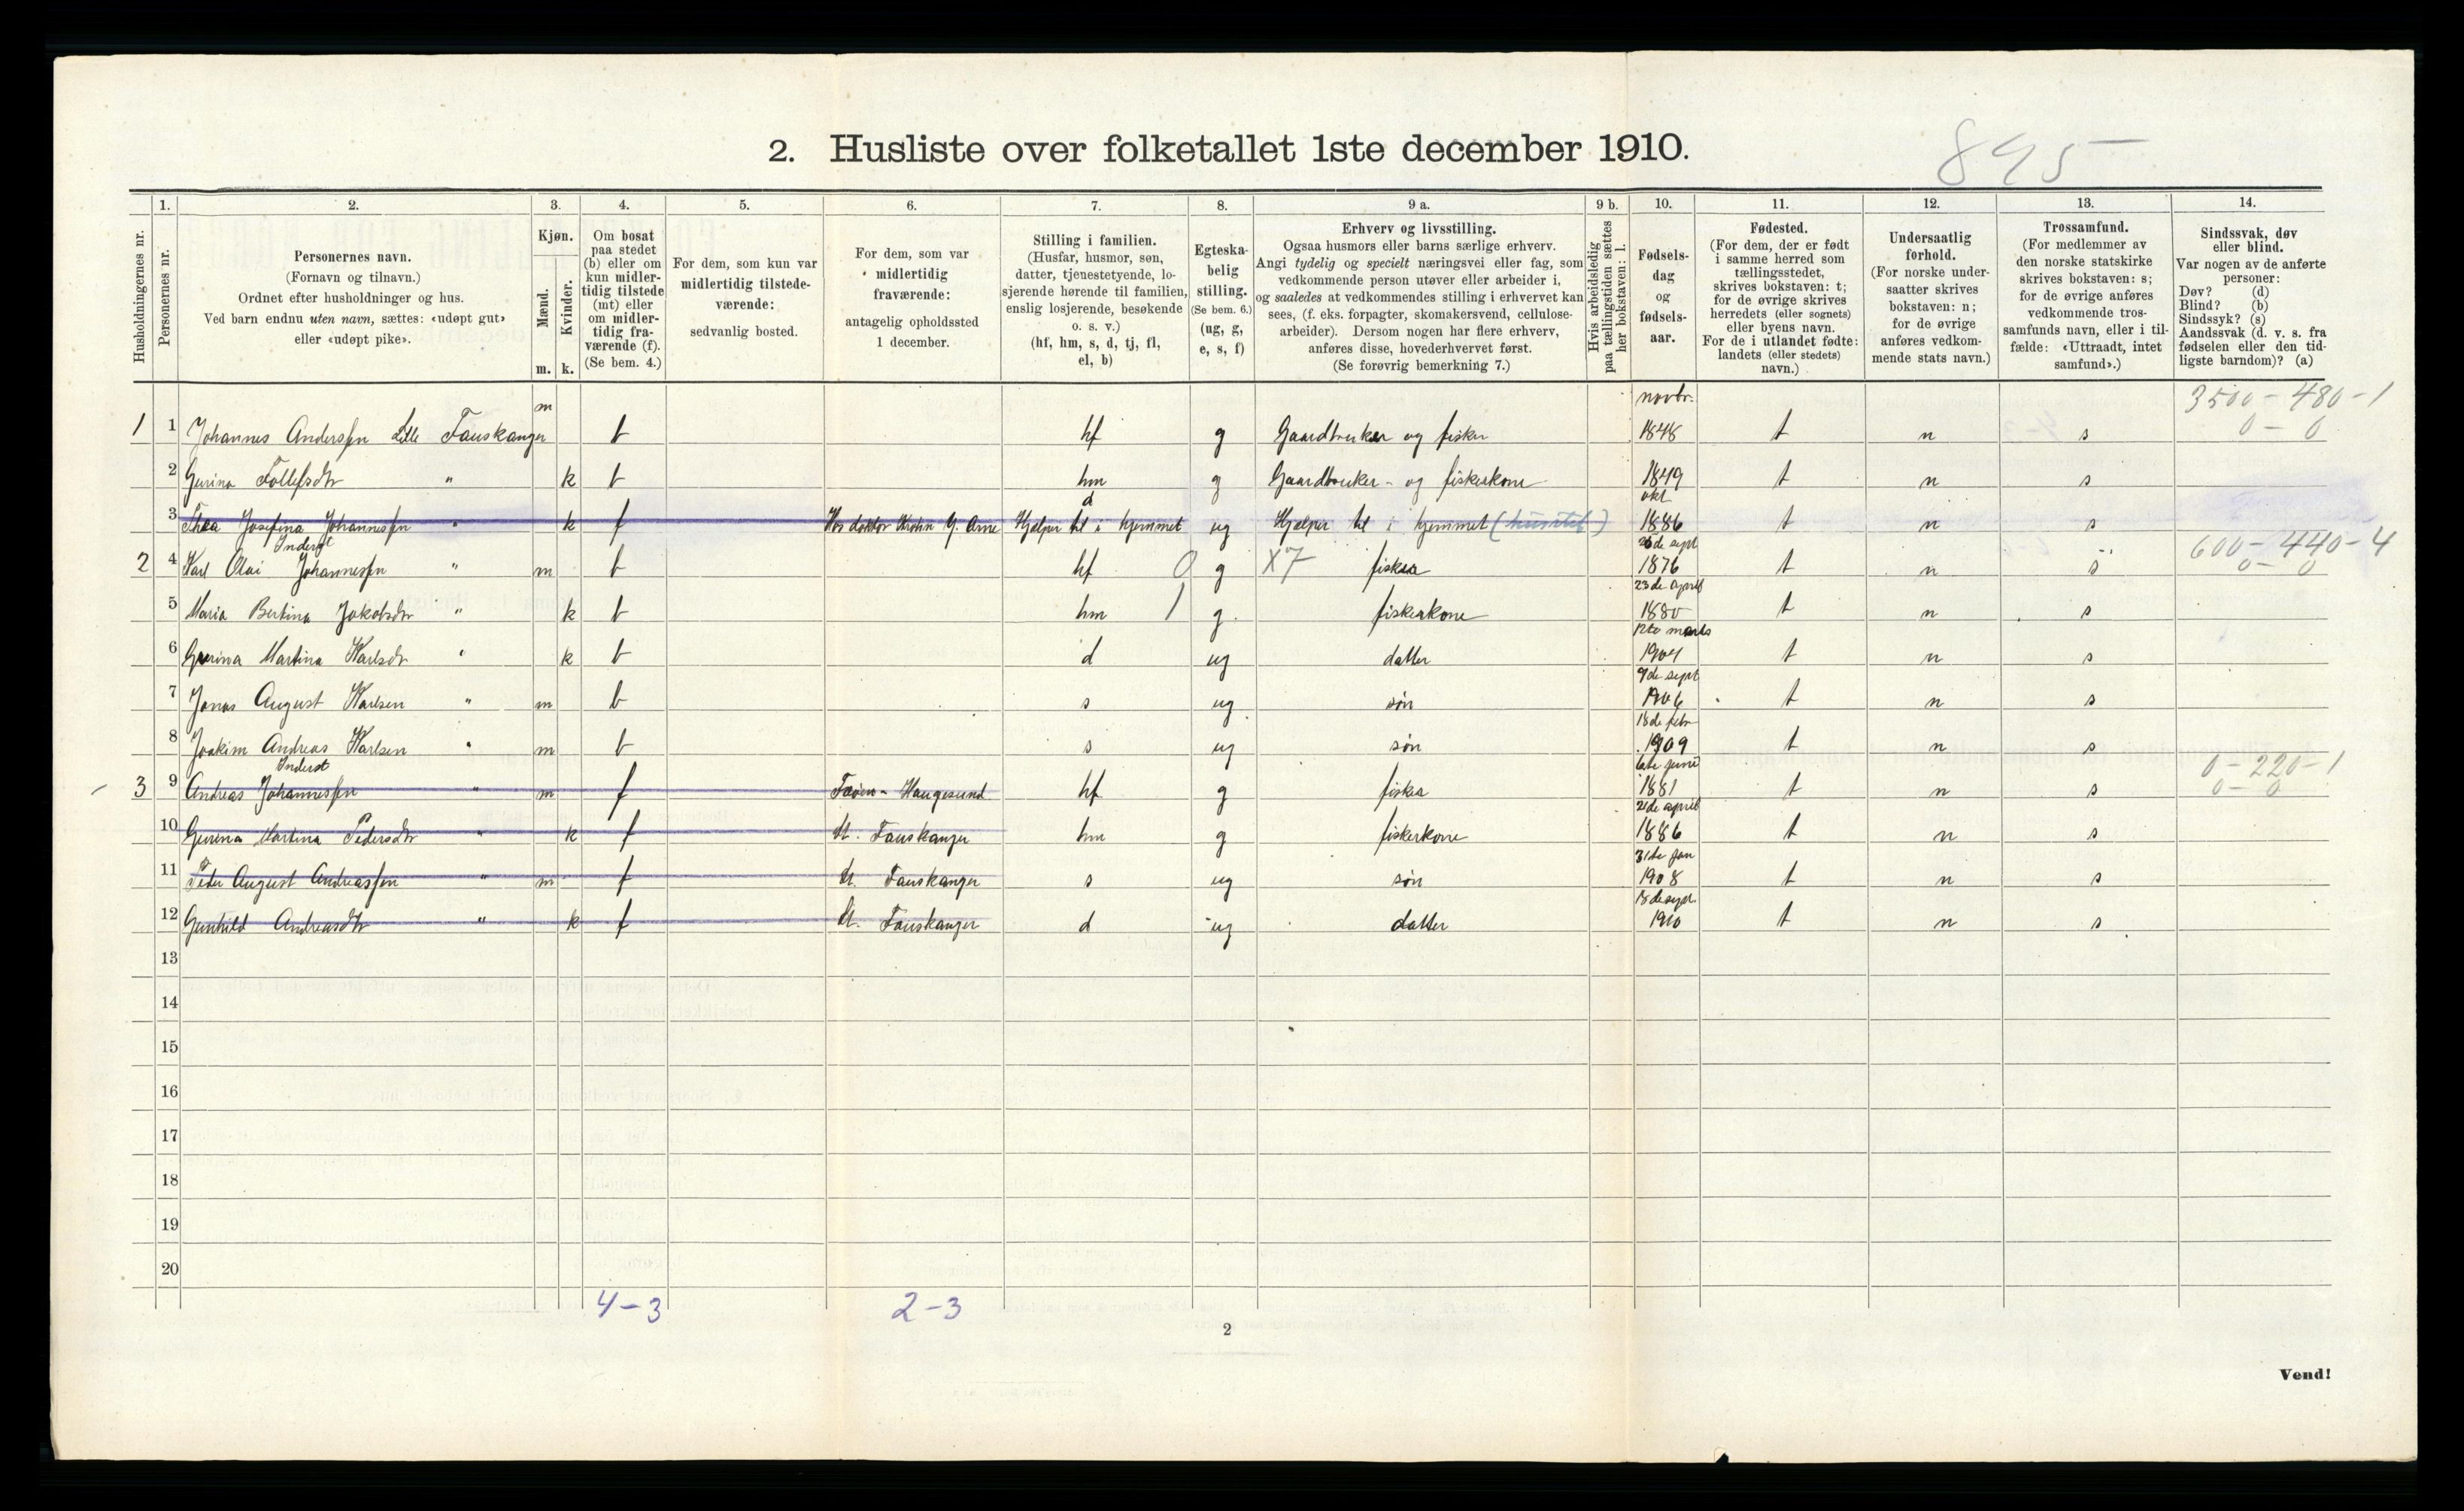 895
2. Husliste over folketallet 1ste december 1910.
Husholdningernes nr.
1. Personernes nr.
2. Personernes navn.
(Fornavn og tilnavn.)
Ordnet efter husholdninger og hus.
Ved barn endnu uten navn, sættes: «udøpt gut»
eller «udøpt pike».
3. Kjøn.
Mænd. m.
Kvinder. k.
4. Om bosat
paa stedet
(b) eller om
kun midler-
tidig tilstede
(mt) eller
om midler-
tidig fra-
værende (f).
(Se bem. 4.)
5. For dem, som kun var
midlertidig tilstede-
værende:
sedvanlig bosted.
6. For dem, som var
midlertidig
fraværende:
antagelig opholdssted
1 december.
7. Stilling i familien.
(Husfar, husmor, søn,
datter, tjenestetyende, lo-
sjerende hørende til familien,
enslig losjerende, besøkende
o. s. v.)
(hf, hm, s, d, tj, fl,
el, b)
8. Egteska-
belig
stilling.
(Se bem. 6.)
(ug, g,
e, s, f)
9 a. Erhverv og livsstilling.
Ogsaa husmors eller barns særlige erhverv.
Angi tydelig og specielt næringsvei eller fag, som
vedkommende person utøver eller arbeider i,
og saaledes at vedkommendes stilling i erhvervet kan
sees, (f. eks. forpagter, skomakersvend, cellulose-
arbeider). Dersom nogen har flere erhverv,
anføres disse, hovederhvervet først.
(Se forøvrig bemerkning 7.)
9 b. Hvis arbeidsledig
paa tællingstiden sættes
her bokstaven: l.
10. Fødsels-
dag
og
fødsels-
aar.
11. Fødested.
(For dem, der er født
i samme herred som
tællingsstedet,
skrives bokstaven: t;
for de øvrige skrives
herredets (eller sognets)
eller byens navn.
For de i utlandet fødte:
landets (eller stedets)
navn.)
12. Undersaatlig
forhold.
(For norske under-
saatter skrives
bokstaven: n;
for de øvrige
anføres vedkom-
mende stats navn.)
13. Trossamfund.
(For medlemmer av
den norske statskirke
skrives bokstaven: s;
for de øvrige anføres
vedkommende tros-
samfunds navn, eller i til-
fælde: «Uttraadt, intet
samfund».)
14. Sindssvak, døv
eller blind.
Var nogen av de anførte
personer:
Døv? (d)
Blind? (b)
Sindssyk? (s)
Aandssvak (d. v. s. fra
fødselen eller den tid-
ligste barndom)? (a)
m novbr. 3500 - 480 - 1
1 1 Johannes Anderssen Lille Fauskanger b hf g Gaardbruker og fisker 1848 t n s 0 - 0
2 Gurina Tollefsdtr " k b hm g Gaardbruker- og fiskerkone 1849 t n s
d okt
3 Thea Josefina Johannessen " k f Hos doktor Krohn Y. Arne Hjælper til i hjemmet ug Hjælper til i hjemmet 1886 t n s
Inderst 26de sept 600 - 440 - 4
2 4 Karl Olai Johannessen " m b hf 0 g x7 fisker 1876 t n s 0 - 0
23de april
5 Maria Bertina Jakobsdtr " k b hm 1 g. fiskerkone 1880 t n s
12te marts
6 Gurina Martina Karlsdtr " k b d ug datter 1904 t n s
9de sept
7 Jonas August Karlsen " m b s ug søn 1906 t n s
18de febr
8 Joakim Andreas Karlsen " m b s ug søn 1909 t n s
Inderst 6te juni 0 - 220 - 1
3 9 Andreas Johannessen " m f Føien - Haugesund hf g fisker 1881 t n s 0 - 0
21de april
10 Gurina Martina Pedersdtr " k f St. Fauskanger hm g fiskerkone 1886 t n s
31te jan
11 Peder August Andreassen " m f St. Fauskanger s ug søn 1908 t n s
18de sept.
12 Gunhild Andreasdtr " k f St. Fauskanger d ug datter 1910 t n s
13
14
15
16
17
18
19
20
4-3 2-3
2
Vend!